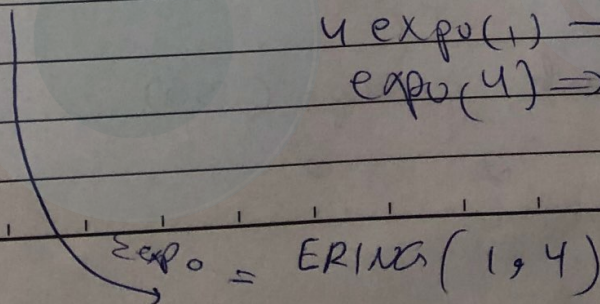 4 expo(1) —
expo(4) =>
Σexpo = ERING(1,4)